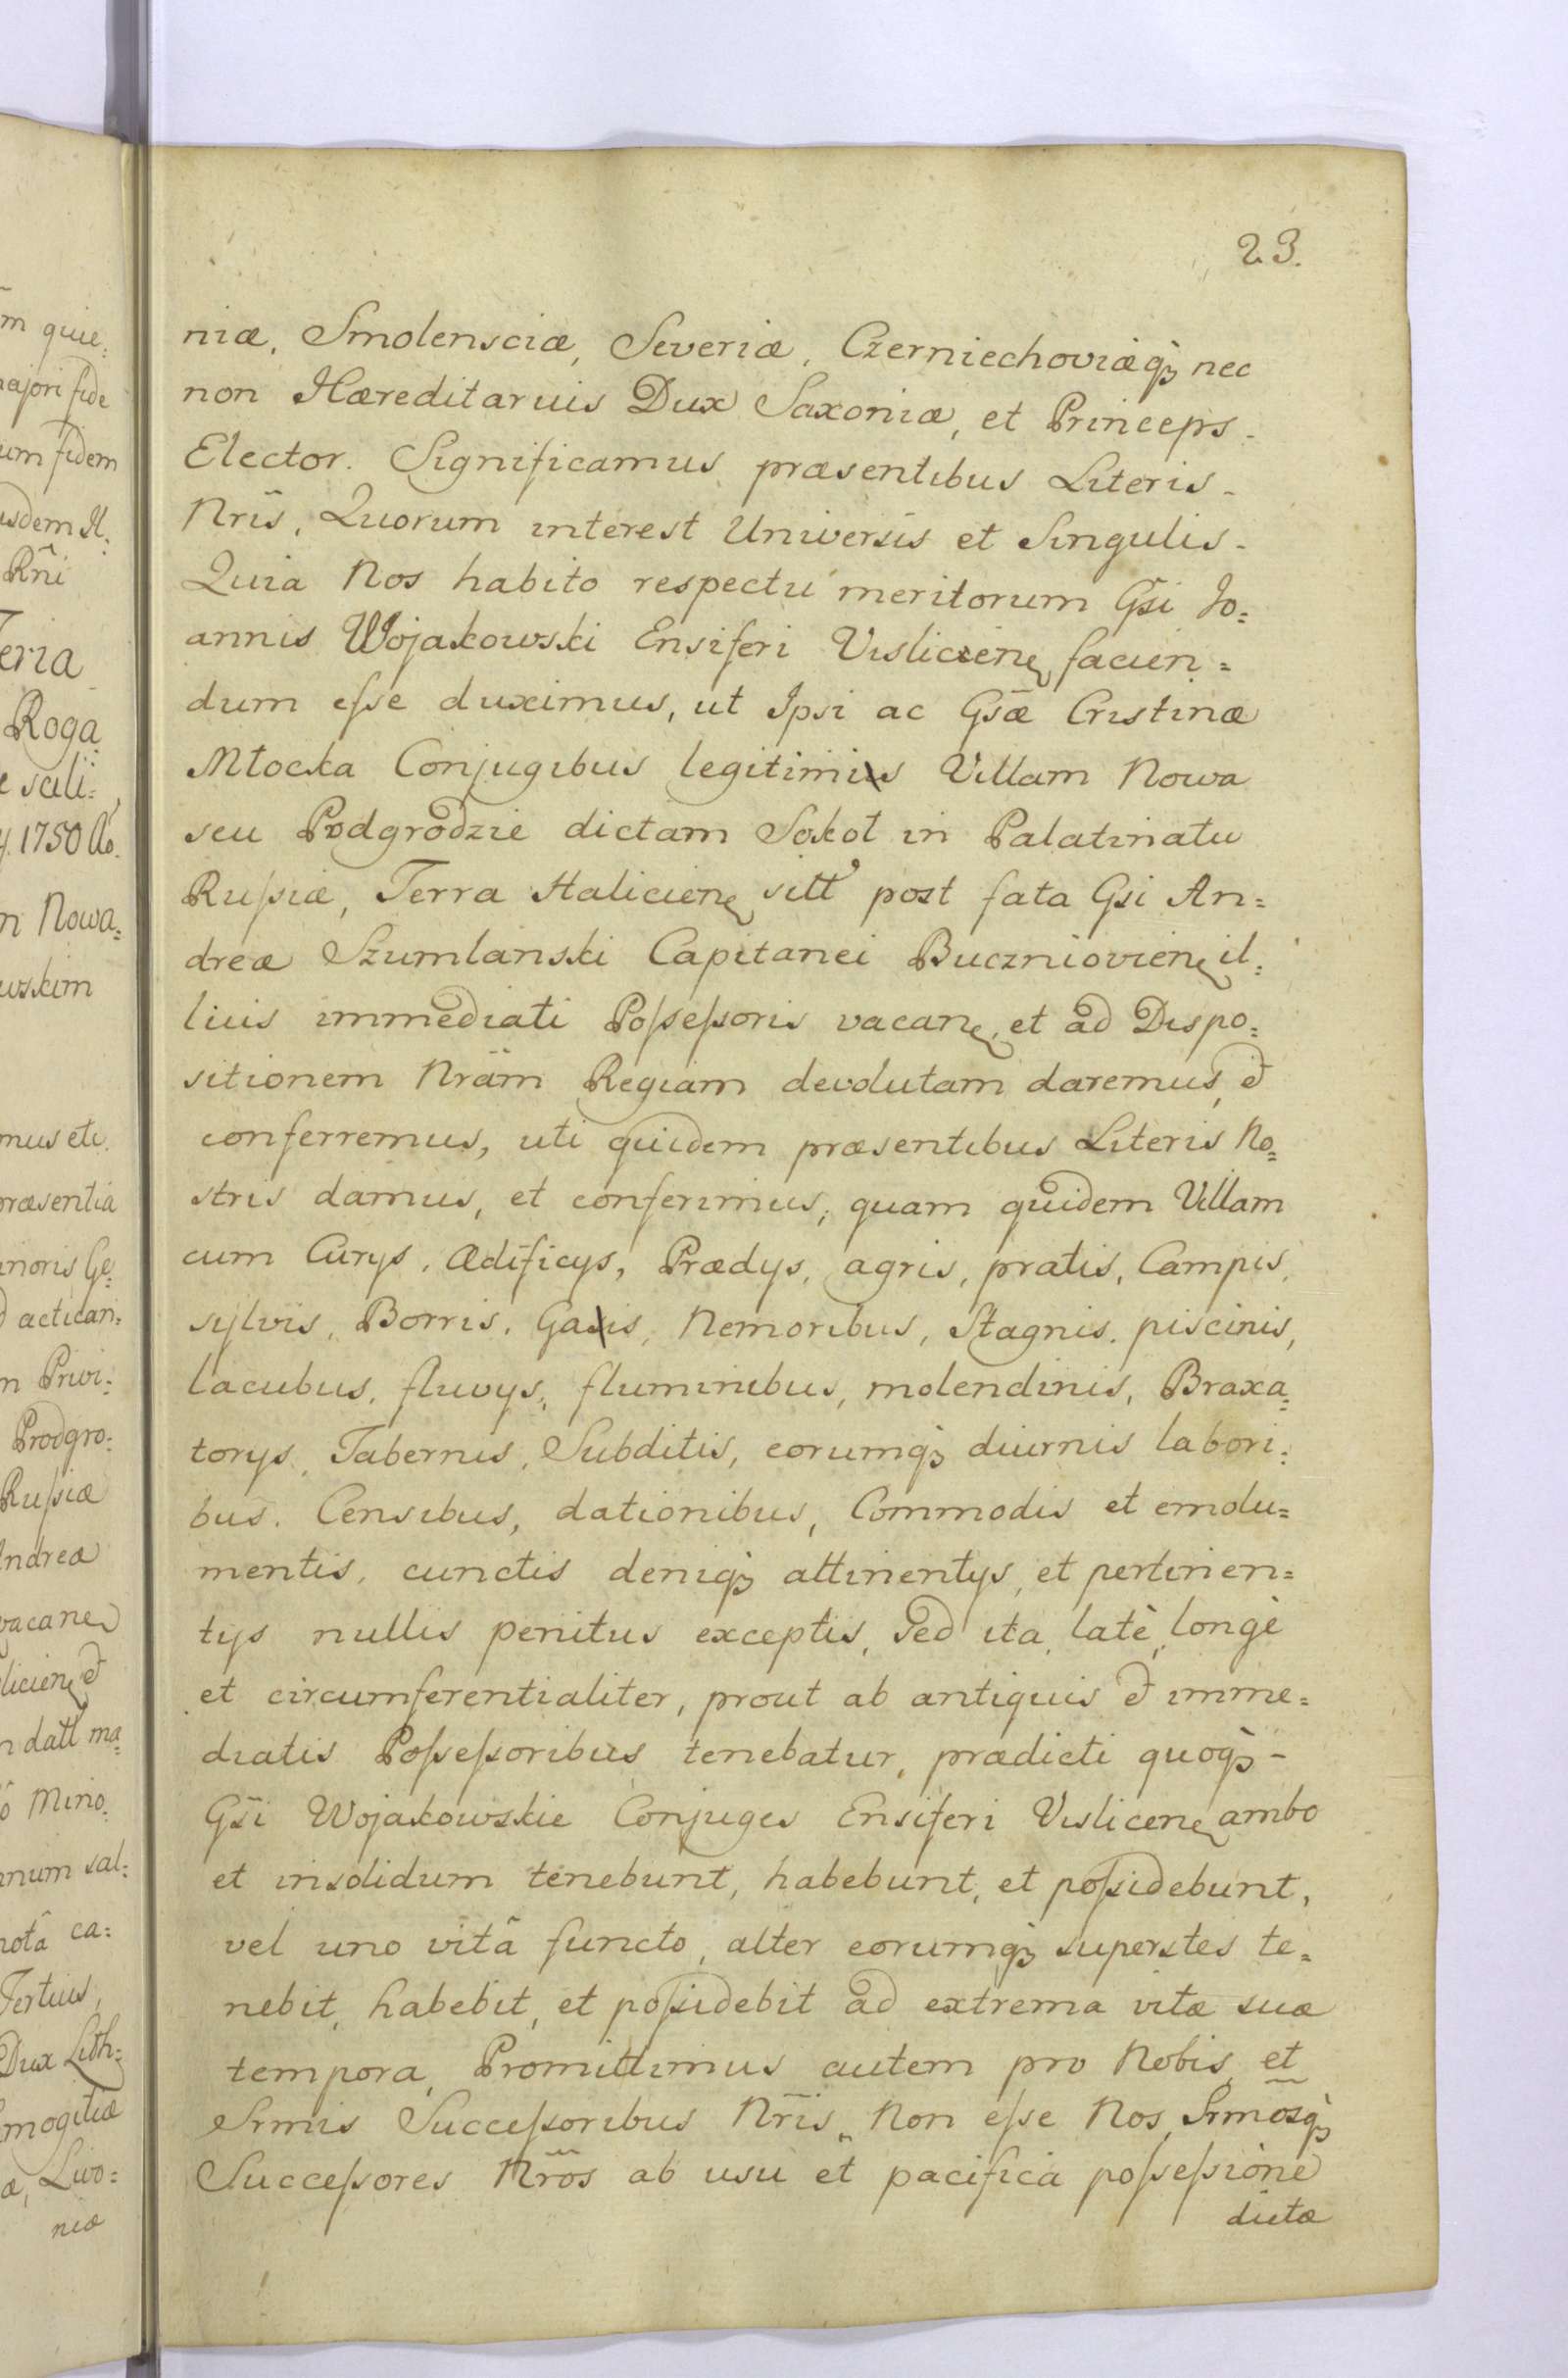 23.
niæ, Smolensciæ, Severiæ, Czerniechoviæq₃ nec
non Hæreditarius Dux Saxoniæ, et Princeps
Elector. Significamus præsentibus Literis
Nris, Quorum interest Universis et Singulis
Quia Nos habito respectu meritorum Gsi Jo=
annis Wojakowski Ensiferi Visliciens facien=
dum eſse duximus, ut Ipsi ac Gsæ Cristinæ
Młocka Conjugibus legitimis Villam Nowa
seu Podgrodzie dictam Sokoł in Palatinatu
Ruſsiæ, Terra Haliciens sitt post fata Gsi An=
dreæ Szumlanski Capitanei Bucznioviens il=
lius immediati Poſseſsoris vacans et ad Dispo=
sitionem Nram Regiam devolutam daremus, et
conferremus, uti quidem præsentibus Literis No=
stris damus, et conferimus; quam quidem Villam
cum Curys, Ædificys, Prædys, agris, pratis, Campis,
sylvis, Borris, Gais, Nemoribus, Stagnis, piscinis,
lacubus, fluvys, fluminibus, molendinis, Braxa=
torys, Tabernis, Subditis, eorumq₃ diurnis labori=
bus. Censibus, dationibus, Commodis et emolu=
mentis, cunctis deniq₃ attinentys, et pertinen=
tys nullis penitus exceptis, sed ita, latè, longè
et circumferentialiter, prout ab antiquis et imme=
diatis Poſseſsoribus tenebatur, prædicti quoq₃
Gsi Wojakowskie Conjuges Ensiferi Vislicens ambo
et insolidum tenebunt, habebunt, et poſsidebunt,
vel uno vitâ functo, alter eorumq₃ superstes te=
nebit, habebit, et poſsidebit ad extrema vitæ suæ
tempora, Promittimus autem pro Nobis, et
Srmis Succeſsoribus Nris, Non eſse Nos, Srmosq₃
Succeſsores Nros ab usu et pacifica poſseſsione
dictæ